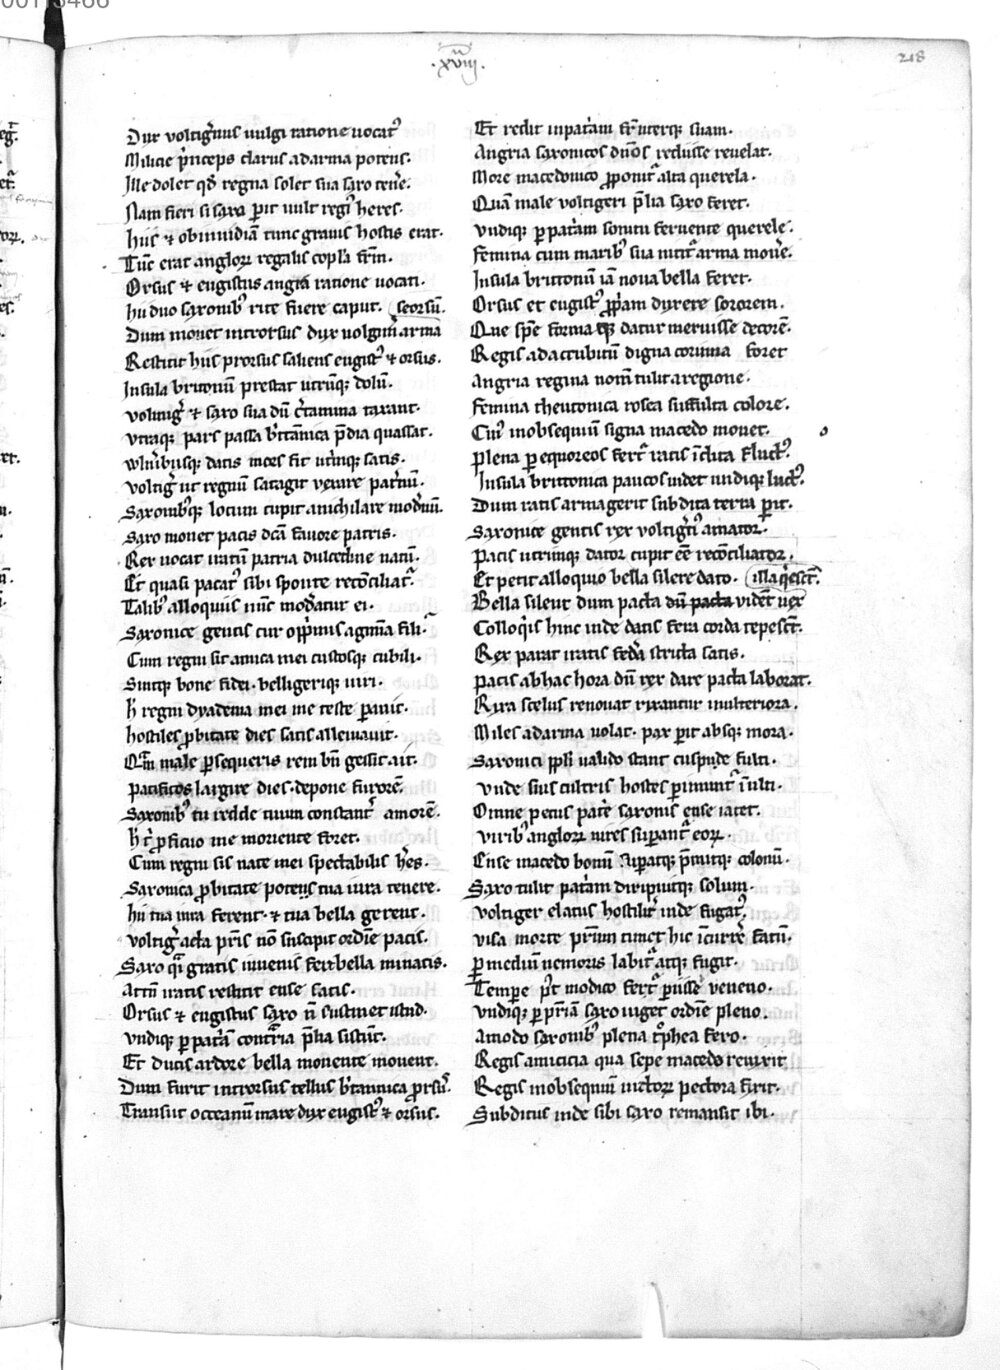 .xviij.
218
Dux voltig̃nus uulgi ratione uocat᷒
Milicie p̃nceps clarus ad arma potens.
Ille dolet qđ regna solet sua saxo ten̾e.
Nam fieri si saxa p̱it uult regi᷒ heres.
Huic ⁊ ob inuidiã tunc grauis hostis erat.
Tũc erat angloꝝ regalis copl̃a fr̃m.
Orsus ⁊ engistus angĩa ratione uocati.
Hii duo saxonib᷒ rite fuere caput.
seorsũ.
Dum mouet introrsus dux uolgin̾ arma
Restitit hiis prorsus saliens engist᷒ ⁊ orsus.
Insula britonũ prestat utrũqꝫ dolũ.
voltig̾ ⁊ saxo sua dũ c̾tamina taxant.
vtraqꝫ pars passa b̾tãnica p̃dia quassat.
wln̾ibusqꝫ datis mors fit ut̾nqꝫ satis.
voltig̾ ut regnũ satagit uenire pat̾nũ.
Saxonib᷒qꝫ locum cupit anichilare mod̾nũ.
Saxo mouet pacis dc̃a fauore patris.
Rex uocat natũ patria dulcedine natũ.
Et quasi pacat᷒ sibi sponte recõciliat᷑.
Talib᷒ alloquiis nũc mod̾atur ei.
Saxonice gentis cur opp̃mis agmĩa fili.
Cum regni sit amica mei custosqꝫ cubili.
Sintqꝫ bone fidei. belligeriqꝫ uiri.
H̾ regni dyadema mei me teste parauit.
Hostiles p̱bitate dies satis alleuiauit.
Qm̃ male p̱sequeris rem bñ gessit ait.
Pacificos largire dies. depone furorẽ.
Saxonib᷒ tu redde tuum constant̾ amorẽ.
H̾ t᷑ proficuo me moriente foret.
Cum regni sis nate mei spectabilis h̾es.
Saxonica p̱bitate potens tua iura tenere.
Hii tua iura ferent. ⁊ tua bella gerent.
voltig̾ acta p̃ris nõ suscipit ordĩe pacis.
Saxo qm̃ gratis iuuenis fert bella minatis.
Attñ natis restitit ense satis.
Orsus ⁊ engistus saxo ñ sustinet istud.
vndiqꝫ p̱ pat̾ã cont̾ria p̃lia sistũt.
Et ducis ardore bella monente mouent.
Dum furit introrsus tellus b̾tannica p̱rsus.
Transiit occeanũ mare dux engist᷒ ⁊ orsus.
Et redit in pat̾am fr̃ uterqꝫ suam.
Angria saxonicos dños rediisse reuelat.
More macedonico p̱ponit᷑ alta querela.
Quã male voltigeri p̃lia saxo feret.
Vndiqꝫ p̱ pat̾am sonitu feruente querele.
Femina cum marib᷒ sua nitit᷑ arma mou̾e.
Insula brittonũ iã noua bella feret.
Orsus et engist᷒ pp̱am duxere sororem.
Que sp̃e forma qꝫ datur meruisse decorẽ.
Regis ad accubitũ digna corinna foret
Angria regina nom̃ tulit a regione.
Femina theutonica rosea suffulta colore.
Cui᷒ in obsequiũ signa macedo mouet.
Plena p̱ equoreos fert᷑ ratis ĩclita fluct᷒.
Insula brittonica paucos uidet undiqꝫ luct᷒.
Dum ratis arma gerit subdita terra p̱it.
Saxonice gentis rex voltig̾i᷒ amator.
Pacis utrimqꝫ dator cupit eẽ recõciliator.
Et petit alloquio bella silere dato.
illa q̾esct᷑.
Bella silent dum pacta dũ pacta uidet rex
Colloq̾is hinc inde datis fera corda tepesct̃.
Rex parat natis fed̾a stricta satis.
Pacis ab hac hora dũ rex dare pacta laborat.
Rixa scelus renouat rixantur in ulteriora.
Miles ad arma uolat. pax p̱it absqꝫ mora.
Saxonici pp̃li ualido stant cuspide fulti.
vnde suis cultris hostes p̱imunt᷑ ĩulti.
Omne pecus pat̾e saxonis ense iacet.
virib᷒ angloꝝ uires sup̱ant᷑ eoꝝ.
Ense macedo bonũ sup̱atqꝫ p̃mitqꝫ colonũ.
Saxo tulit pat̾am diripuitqꝫ solum.
voltiger elatus hostilit̾ inde fugat᷒.
visa morte p̃rnm timet hic ĩcurr̾e fatũ.
P̱ mediũ nemoris labit᷑ atqꝫ fugit.
Tempe p̱t modico fert᷑ p̱iisse ueneno.
vndiqꝫ p̱ pr̃iã saxo uiget ordĩe pleno.
Amodo saxonib᷒ plena t᷒phea fero.
Regis amicicia qua sepe macedo reuixit
Regis in obsequiũ uictoꝝ pectora furit.
Subditus inde sibi saxo remansit ibi.